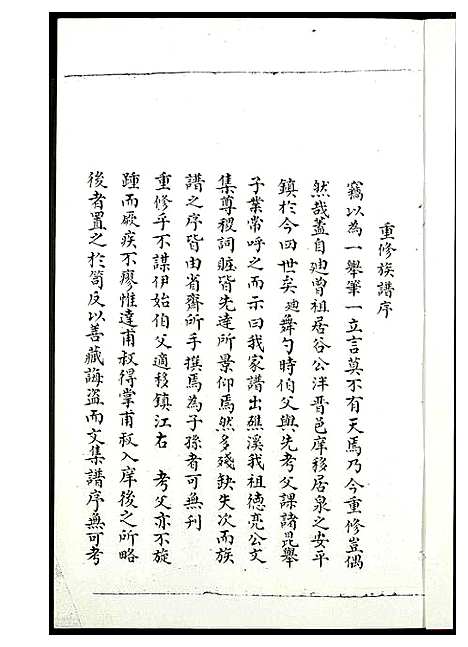 重修族譜序
竊以為一舉筆一立言莫不有天焉乃今重修豈偶
然哉蓋自廸曾祖居谷公泮晉邑庠移居泉之安平
鎮於今四世矣廸舞勺時伯父與先考父課諸昆舉
子業常呼之而示曰我家譜出礁溪我祖徳亮公文
集尊稷詞賍皆先達所景仰焉然多殘缺失次而族
譜之序皆由省齋所手撰焉為子孫者可無刊
重修乎不謀伊始伯父適移鎮江右 考父亦不旋
踵而厥疾不廖惟達甫叔得掌甫叔入庠後之所略
後者置之於笥反以善藏誨盜而文集譜序無可考